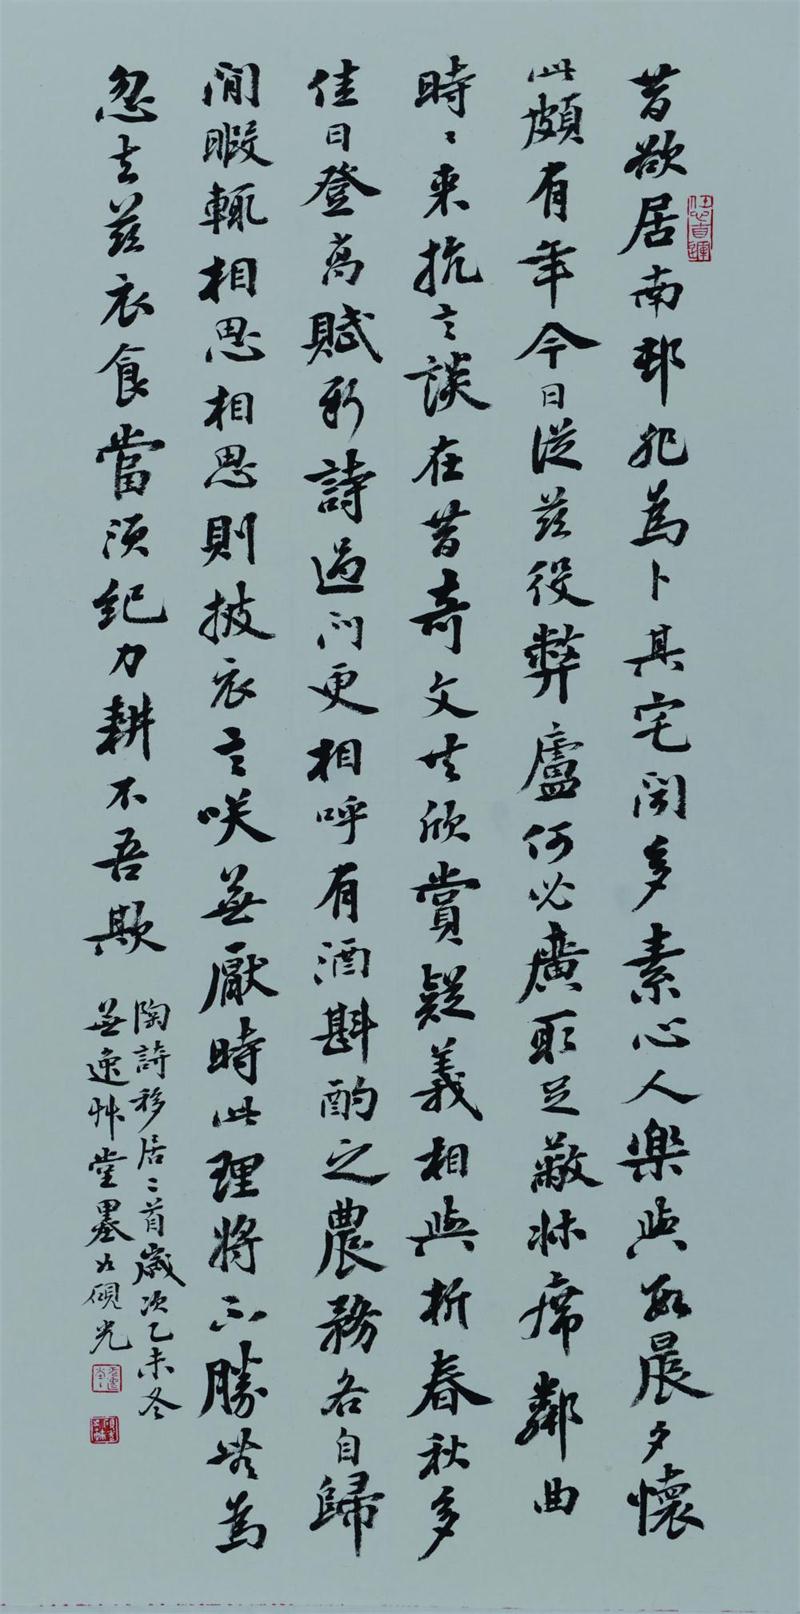 昔欲居南邨非為卜其宅聞多素心人樂與數晨夕懷
此頗有年今日從茲役弊廬何必廣取足蔽牀席鄰曲
時〻來抗言談在昔奇文共欣賞疑義相與析春秋多
佳日登高賦新詩過門更相呼有酒斟酌之農務各自歸
閒暇輒相思相思則披衣言咲無厭時此理將不勝無為
忽去茲衣食當須紀力耕不吾欺
陶詩移居二首歲次乙未冬
無逸艸堂墨光